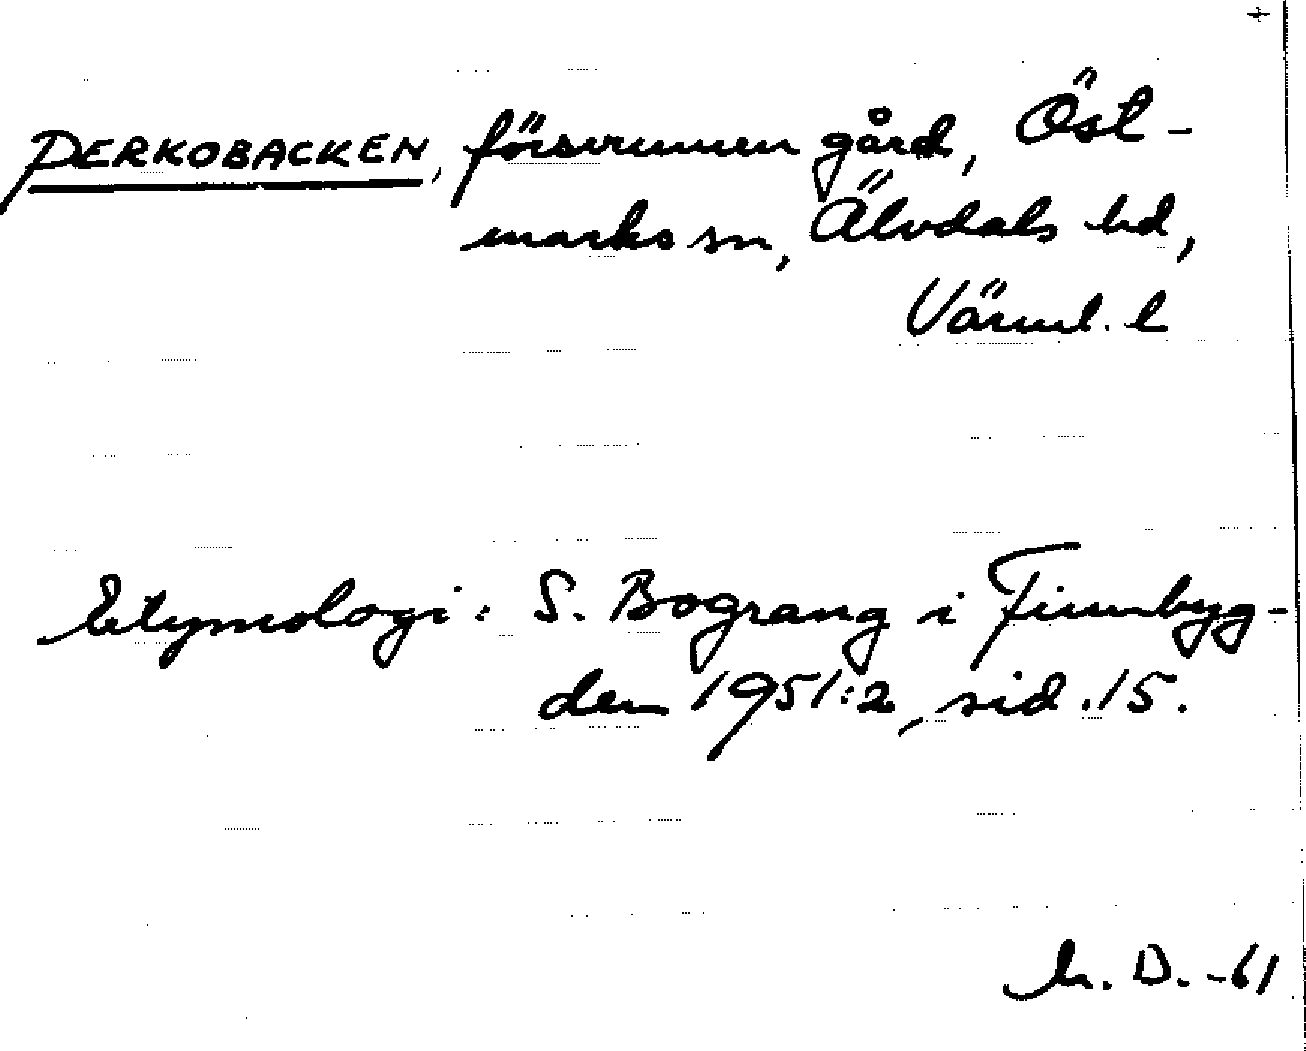 PERKOBACKEN, försvunnen gård, Öst-
marks sn, Älvdals hd,
Värml. l
Etymologi: S. Bograng i Finnbyg-
den 1951:2, sid. 15.
h. D. -61